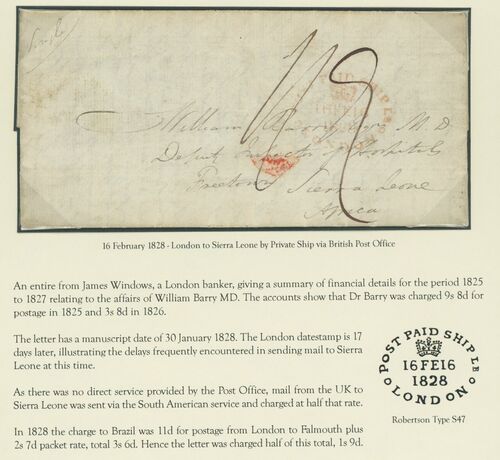 Single
1/9
PAID SHIP LR
William Barry Esqr M.D.
Deputy Inspector of Hospitals
Freetown Sierra Leone
Africa
16 February 1828 - London to Sierra Leone by Private Ship via British Post Office
An entire from James Windows, a London banker, giving a summary of financial details for the period 1825
to 1827 relating to the affairs of William Barry MD. The accounts show that Dr Barry was charged 9s 8d for
postage in 1825 and 3s 8d in 1826.
The letter has a manuscript date of 30 January 1828. The London datestamp is 17
days later, illustrating the delays frequently encountered in sending mail to Sierra
Leone at this time.
As there was no direct service provided by the Post Office, mail from the UK to
Sierra Leone was sent via the South American service and charged at half that rate.
In 1828 the charge to Brazil was 11d for postage from London to Falmouth plus
2s 7d packet rate, total 3s 6d. Hence the letter was charged half of this total, 1s 9d.
POST PAID SHIP LR
16FE16
1828
LONDON
Robertson Type S47